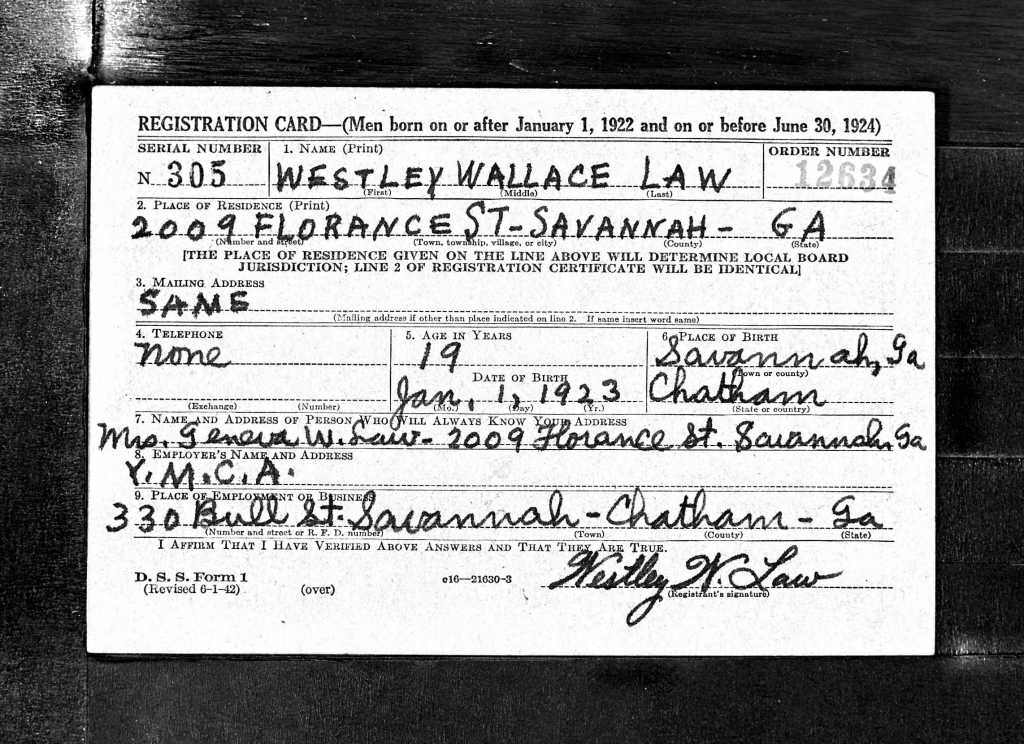 REGISTRATION CARD—(Men born on or after January 1, 1922 and on or before June 30, 1924)
SERIAL NUMBER 1. NAME (Print) ORDER NUMBER
N 305 WESTLEY WALLACE LAW 12634
(First) (Middle) (Last)
2. PLACE OF RESIDENCE (Print)
2009 FLORANCE ST-SAVANNAH- GA
(Number and street) (Town, township, village, or city) (County) (State)
[THE PLACE OF RESIDENCE GIVEN ON THE LINE ABOVE WILL DETERMINE LOCAL BOARD
JURISDICTION; LINE 2 OF REGISTRATION CERTIFICATE WILL BE IDENTICAL]
3. MAILING ADDRESS
SAME
(Mailing address if other than place indicated on line 2. If same insert word same)
4. TELEPHONE 5. AGE IN YEARS 6. PLACE OF BIRTH
None 19 Savannah, Ga
DATE OF BIRTH (Town or county)
Jan. 1, 1923 Chatham
(Exchange) (Number) (Mo.) (Day) (Yr.) (State or country)
7. NAME AND ADDRESS OF PERSON WHO WILL ALWAYS KNOW YOUR ADDRESS
Mrs. Geneva W. Law- 2009 Florance St. Savannah, Ga
8. EMPLOYER'S NAME AND ADDRESS
Y.M.C.A.
9. PLACE OF EMPLOYMENT OR BUSINESS
330 Bull St. Savannah-Chatham-Ga
(Number and street or R. F. D. number) (Town) (County) (State)
I AFFIRM THAT I HAVE VERIFIED ABOVE ANSWERS AND THAT THEY ARE TRUE.
Westley W. Law
D. S. S. Form 1 c16—21630-3
(Revised 6-1-42) (over) (Registrant's signature)